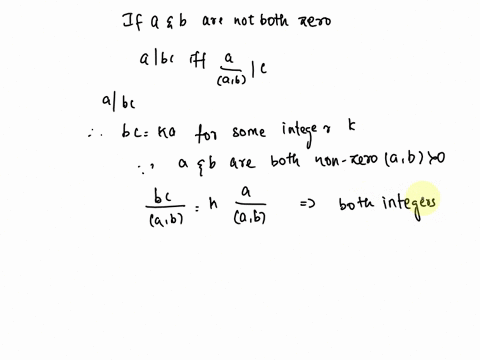 If a & b are not both zero
a|bc iff a/(a,b) | c
a/bc
∴ bc = ka for some integer k
∵ a & b are both non-zero (a,b)>0
bc/(a,b) = k a/(a,b) => both integers